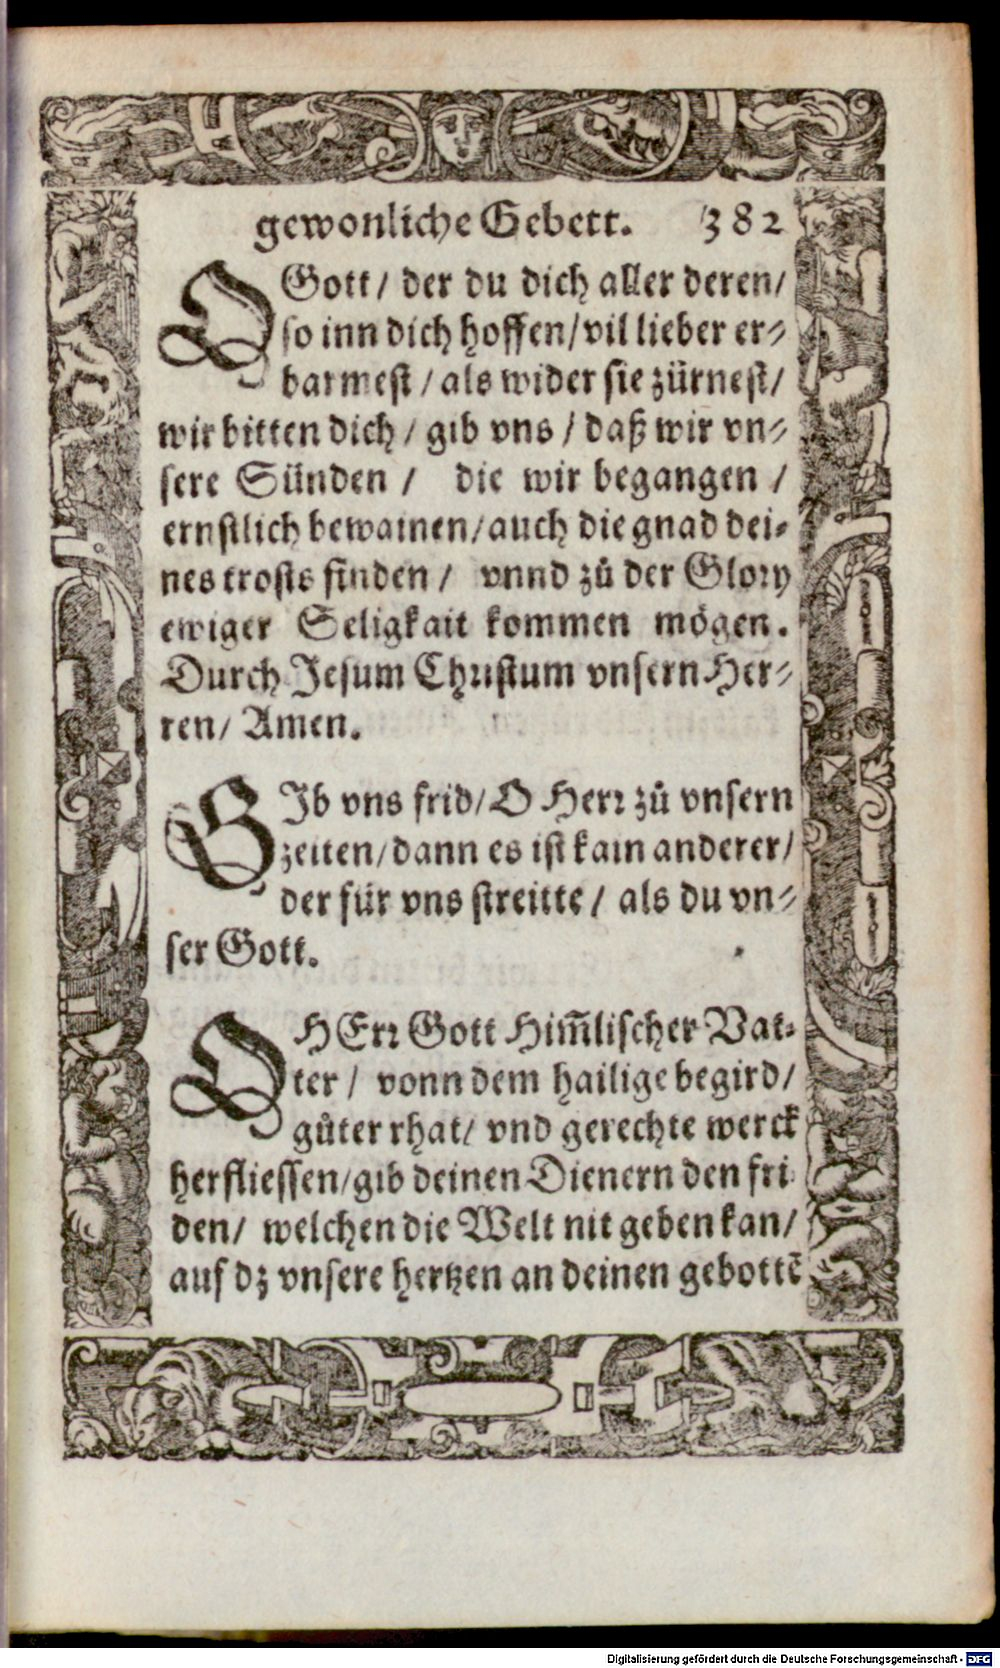 gewonliche Gebett. 382
O Gott / der du dich aller deren /
so inn dich hoffen / vil lieber er⸗
barmest / als wider sie zürnest /
wir bitten dich / gib vns / daß wir vn⸗
sere Sünden / die wir begangen /
ernstlich bewainen / auch die gnad dei⸗
nes trosts finden / vnnd zů der Glory
ewiger Seligkait kommen mögen.
Durch Jesum Christum vnsern Her⸗
ren / Amen.
GIb vns frid / O Herr zů vnsern
zeiten / dann es ist kain anderer /
der für vns streitte / als du vn⸗
ser Gott.
O HErr Gott Him̃lischer Vat⸗
ter / vonn dem hailige begird /
gůter rhat / vnd gerechte werck
herfliessen / gib deinen Dienern den fri
den / welchen die Welt nit geben kan /
auf dz vnsere hertzen an deinen gebottẽ
Digitalisierung gefördert durch die Deutsche Forschungsgemeinschaft - DFG